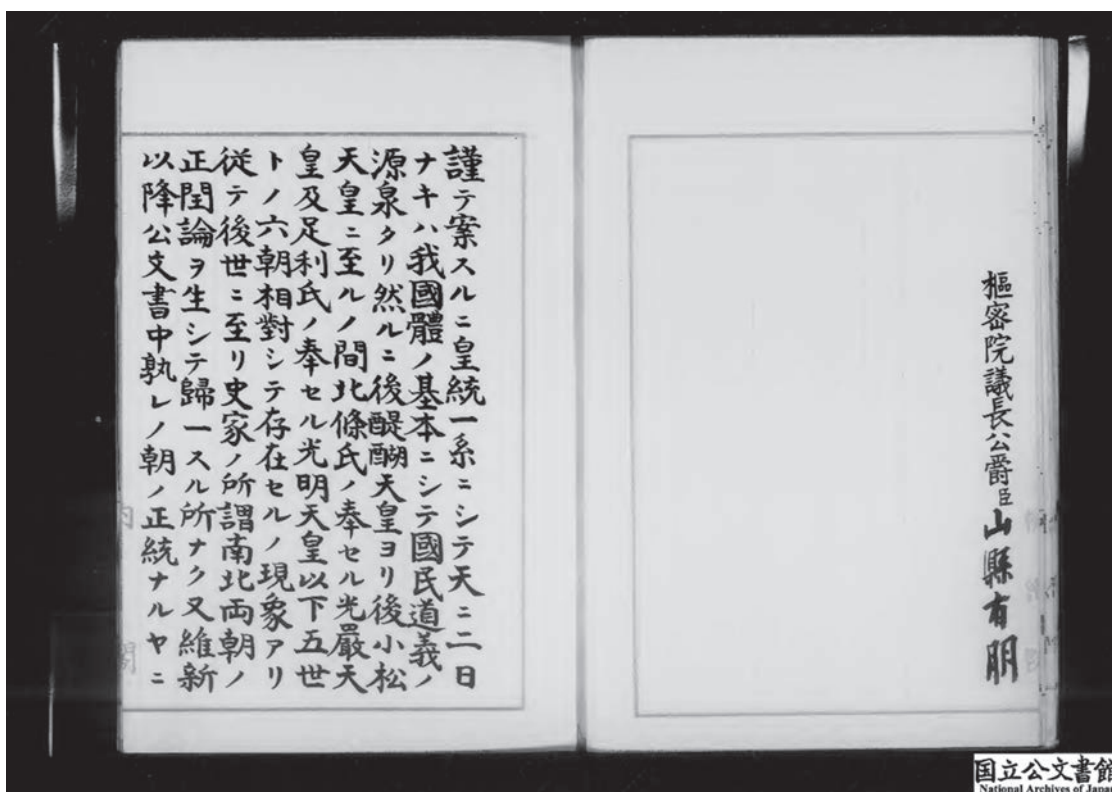 樞密院議長公爵臣山縣有朋
謹テ案スルニ皇統一系ニシテ天ニ二日
ナキハ我國體ノ基本ニシテ國民道義ノ
源泉タリ然ルニ後醍醐天皇ヨリ後小松
天皇ニ至ルノ間北條氏ノ奉セル光嚴天
皇及足利氏ノ奉セル光明天皇以下五世
トノ六朝相對シテ存在セルノ現象アリ
従テ後世ニ至リ史家ノ所謂南北両朝ノ
正閏論ヲ生シテ歸一スル所ナク又維新
以降公文書中孰レノ朝ノ正統ナルヤニ
内
閣
国立公文書館
National Archives of Japan